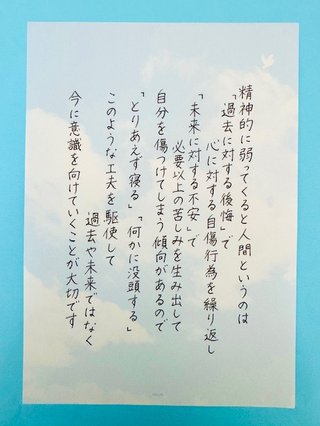 精神的に弱ってくると人間というのは
「過去に対する後悔」で
心に対する自傷行為を繰り返し
「未来に対する不安」で
必要以上の苦しみを生み出して
自分を傷つけてしまう傾向があるので
「とりあえず寝る」「何かに没頭する」
このような工夫を駆使して
過去や未来ではなく
今に意識を向けていくことが大切です